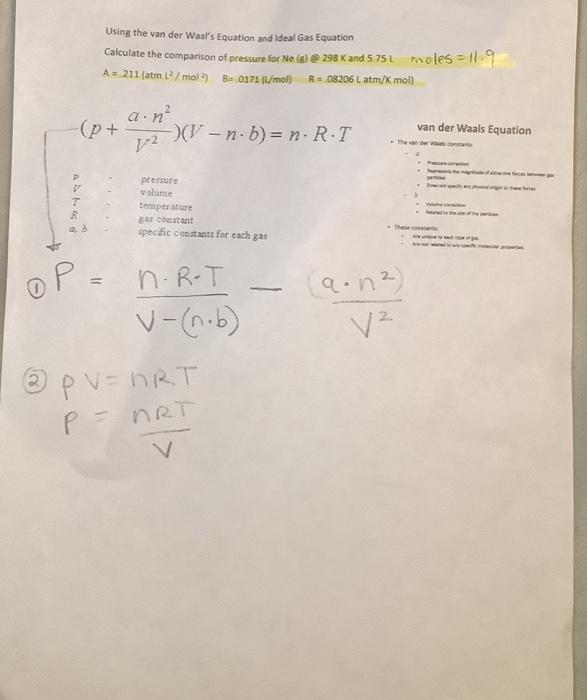 Using the van der Waal's Equation and Ideal Gas Equation
Calculate the comparison of pressure for Ne (g) @ 298 K and 5.75 L moles = 11.9
A = .211 (atm L²/ mol²) B= .0171 (L/mol) R = .08206 L atm/K mol)
(p + a · n² / V²)(V − n · b) = n · R · T
van der Waals Equation
• The van der Waals constants
– a
• Pressure correction
• Represents the magnitude of attractive forces between gas particles
• Does not specify any physical origin to these forces
– b
• Volume correction
• Related to the size of the particles
• These constants
– Are unique to each type of gas
– Are not related to any specific molecular properties
P - pressure
V - volume
T - temperature
R - gas constant
a, b - specific constants for each gas
① P = n·R·T / V-(n·b) - (a·n²) / V²
② PV = nRT
P = nRT / V